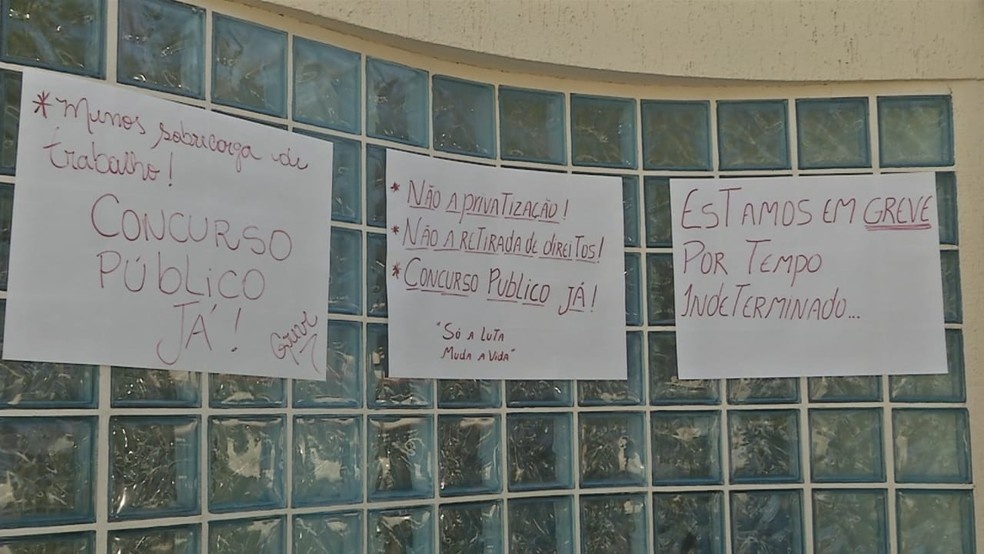 * Menos sobrecarga de
trabalho!
CONCURSO
PÚBLICO
JÁ!
Greve
* NÃO A PRIVATIZAÇÃO!
* NÃO A RETIRADA DE DIREITOS!
* CONCURSO PUBLICO JÁ!
"SÓ A LUTA
MUDA A VIDA"
ESTAMOS EM GREVE
POR TEMPO
INDETERMINADO...